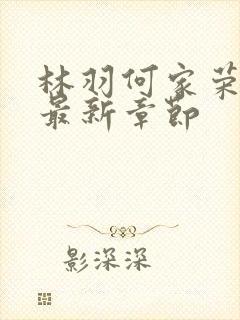 林羽何家荣
最新章节
影深深